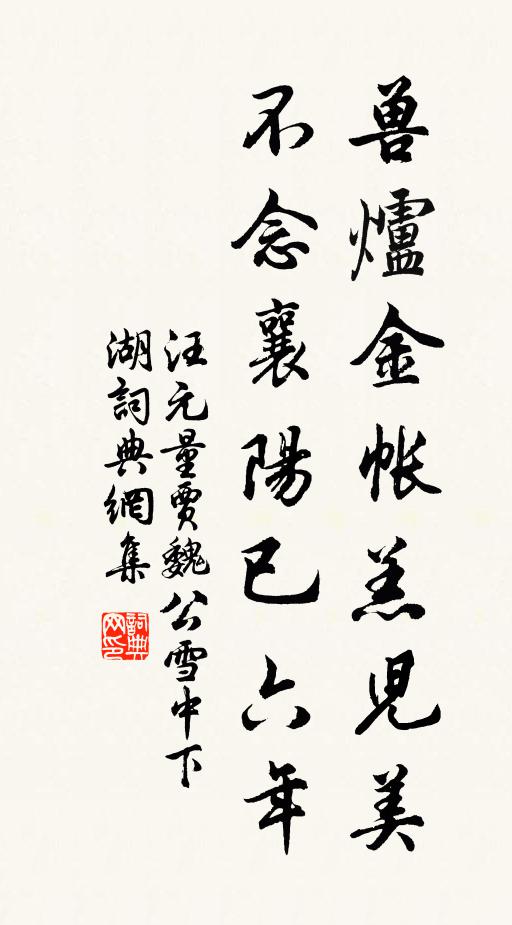 兽爐金帐羔児美
不念襄陽已六年
汪元量賈魏公雪中下
湖詞典網集
詞典网印